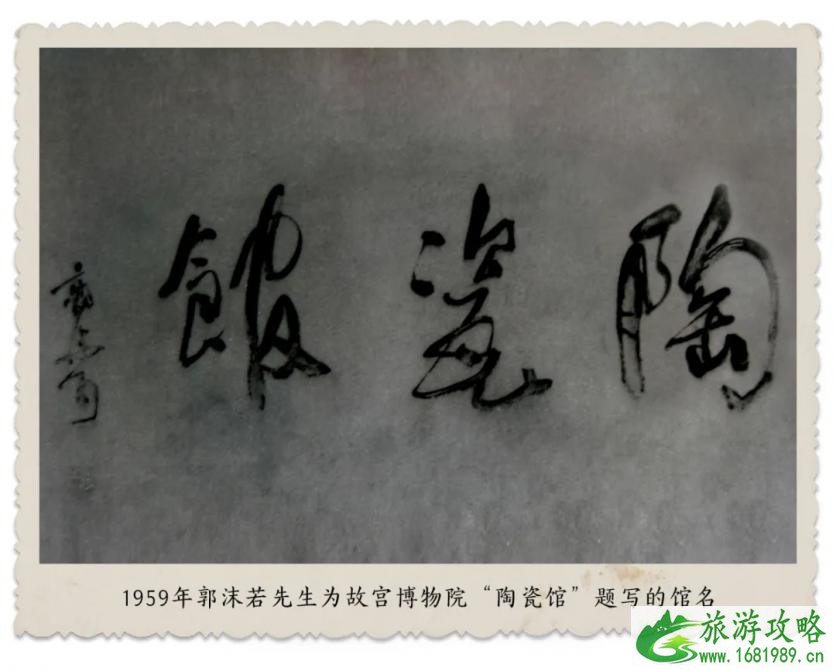 陶瓷館
郭沫若
1959年郭沫若先生为故宫博物院“陶瓷馆”题写的馆名
旅游攻略
www.1681989.cn